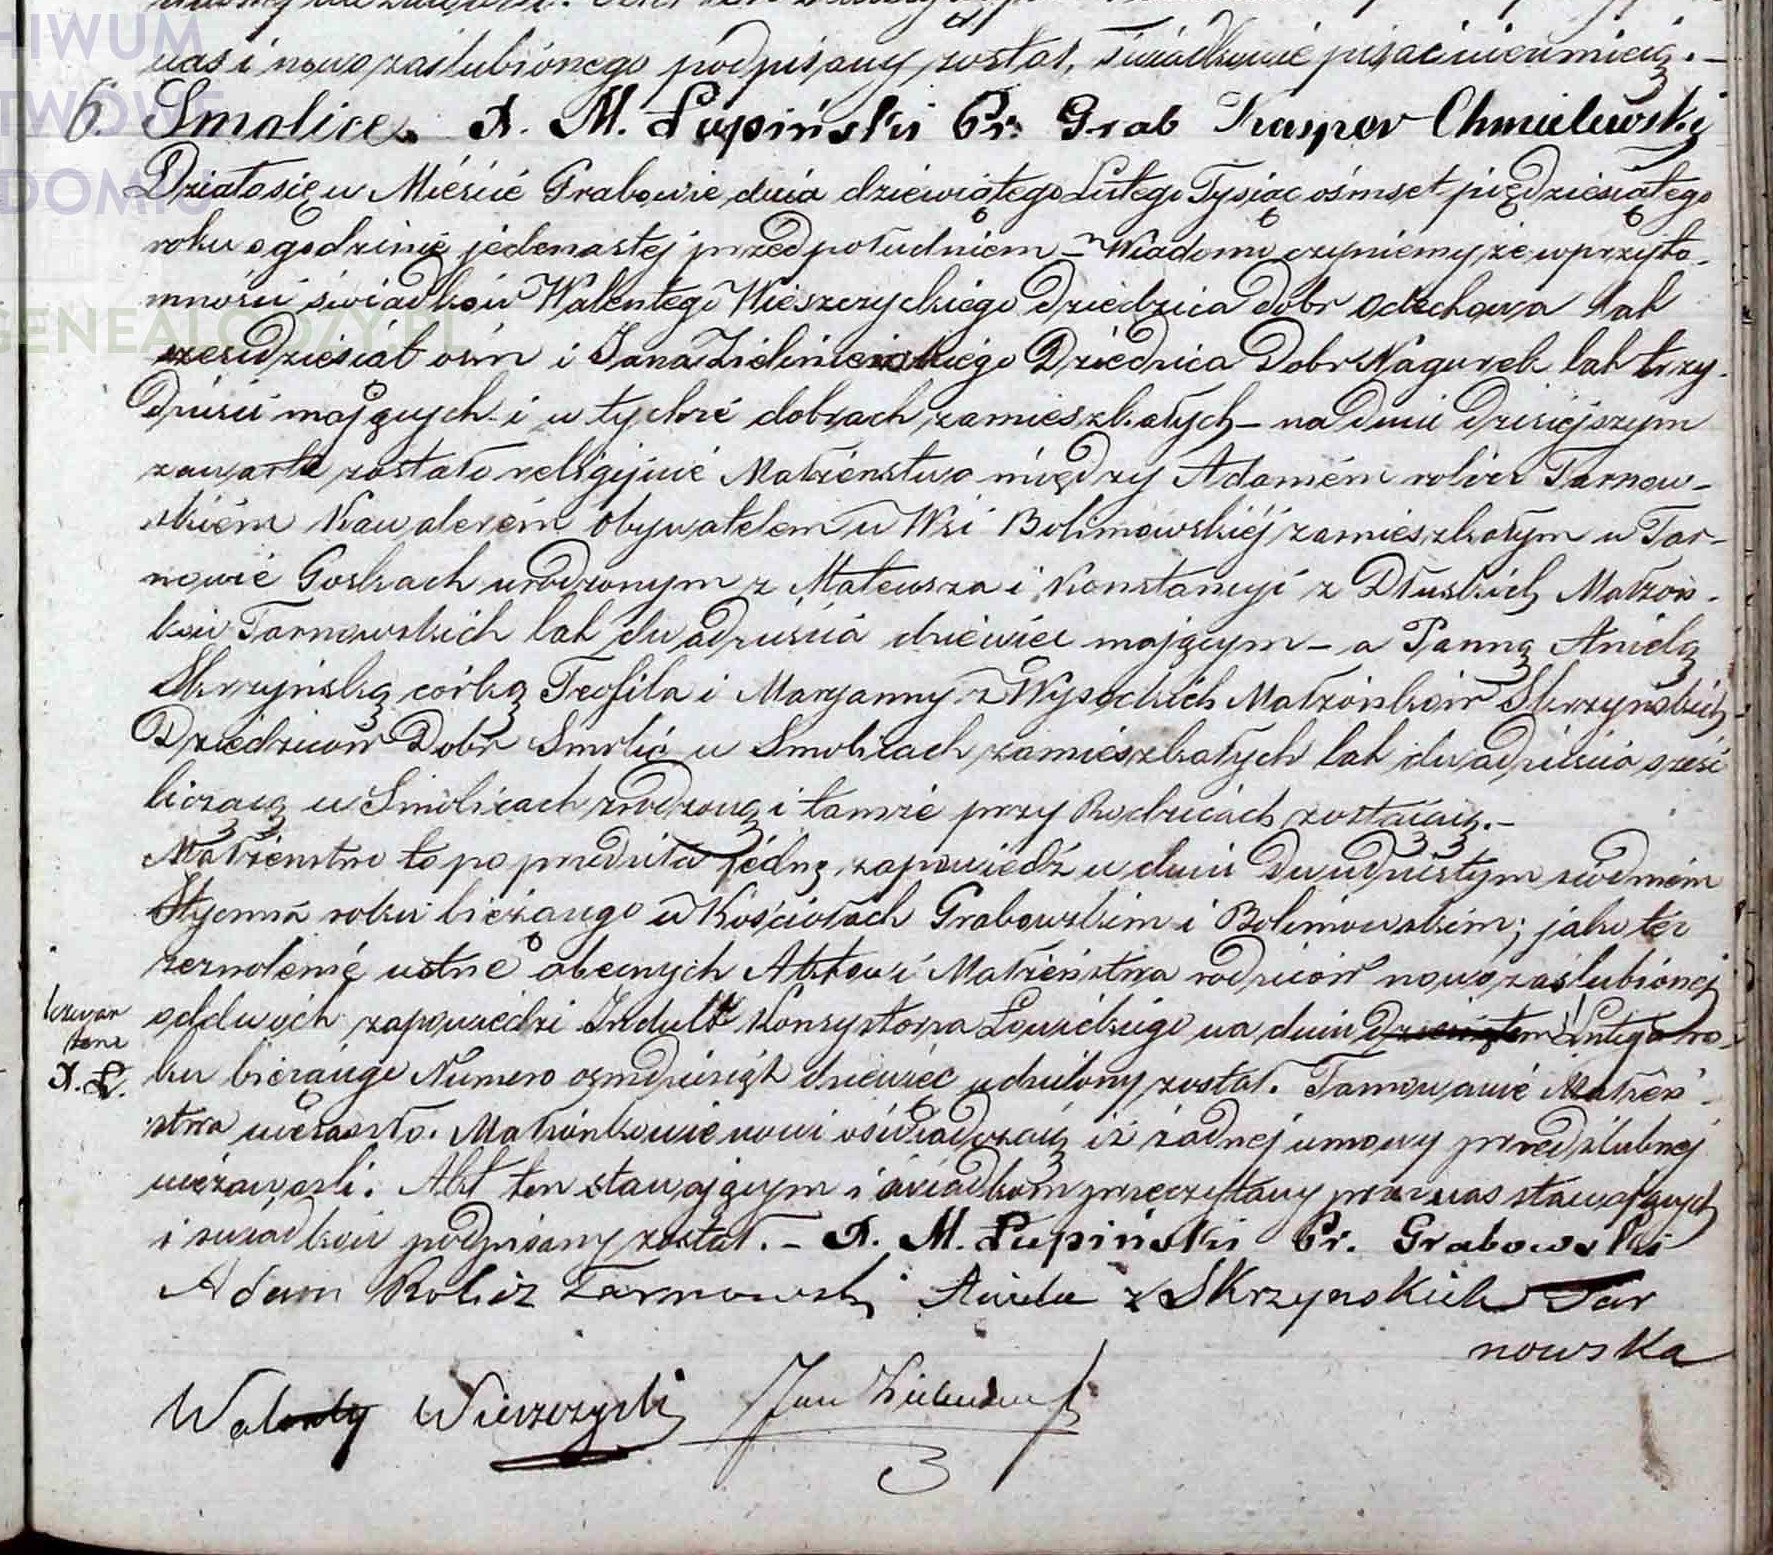 nas i nowo zaślubionego podpisany został, świadkowie pisać nie umieią. –
6. Smolice. X. M. Łupiński Pr. Grab Kasper Chmielewski
Działo się w Mieście Grabowie dnia dziewiątego Lutego Tysiąc ośmset pięćdziesiątego
roku o godzinie jedenastej przed południem – Wiadomo czyniemy że w przyto-
mności świadków Walentego Wieszczyckiego Dziedzica Dobr Ochchowa lat
sześćdziesiąt ośm i Jana Dziedzica Dobr Nagurek lat trzy-
dzieści mających i w tychże dobrach zamieszkałych – na dniu dzisiejszym
zawarte zostało religijnie Małżeństwo między Adamem rolicz Tarnow-
skiem Kawalerem Obywatelem w Wsi Bolimowskiéj zamieszkałym w Tar-
nowie Goskach urodzonym z Mateusza i Konstancyi z Dłuskich Małżon-
ków Tarnowskich lat dwadzieścia dziewięć mającym – a Panną Anielą
Skrzyńską córką Teofila i Maryanny z Wysockich Małżonków Skrzyńskich
Dziedziców Dobr Smolic w Smolicach zamieszkałych lat dwadzieścia sześć
liczącą w Smolicach zrodzoną i tamże przy Rodzicach zostaiącą. –
Małżeństwo to poprzedziła jedna zapowiedź w dniu Dwudziestym siódmem
Stycznia roku bieżącego w Kościołach Grabowskim i Bolimowskim; jako téż
zezwolenie ustne obecnych Aktowi Małżeństwa rodziców nowo zaślubionej
od dwóch zapowiedzi Indult Konsystorza Łowickiego na dniu dziewiątem Lutego ro-
czwar
tem
X. Ł.
ku bieżącego Numero ośmdziesiąt dziewięć udzielony został. Tamowanie Małżeń-
stwa nie zaszło. Małżonkowie nowi oświadczaią iż żadnej umowy przedślubnej
nie zawarli. Akt ten stawającym i świadkom przeczytany przez nas stawających
i świadków podpisany został. – X. M. Łupiński Pr. Grabowski
Adam Rolicz Tarnowski Aniela z Skrzynskich Tar
nowska
Walenty Wieszczycki Jan